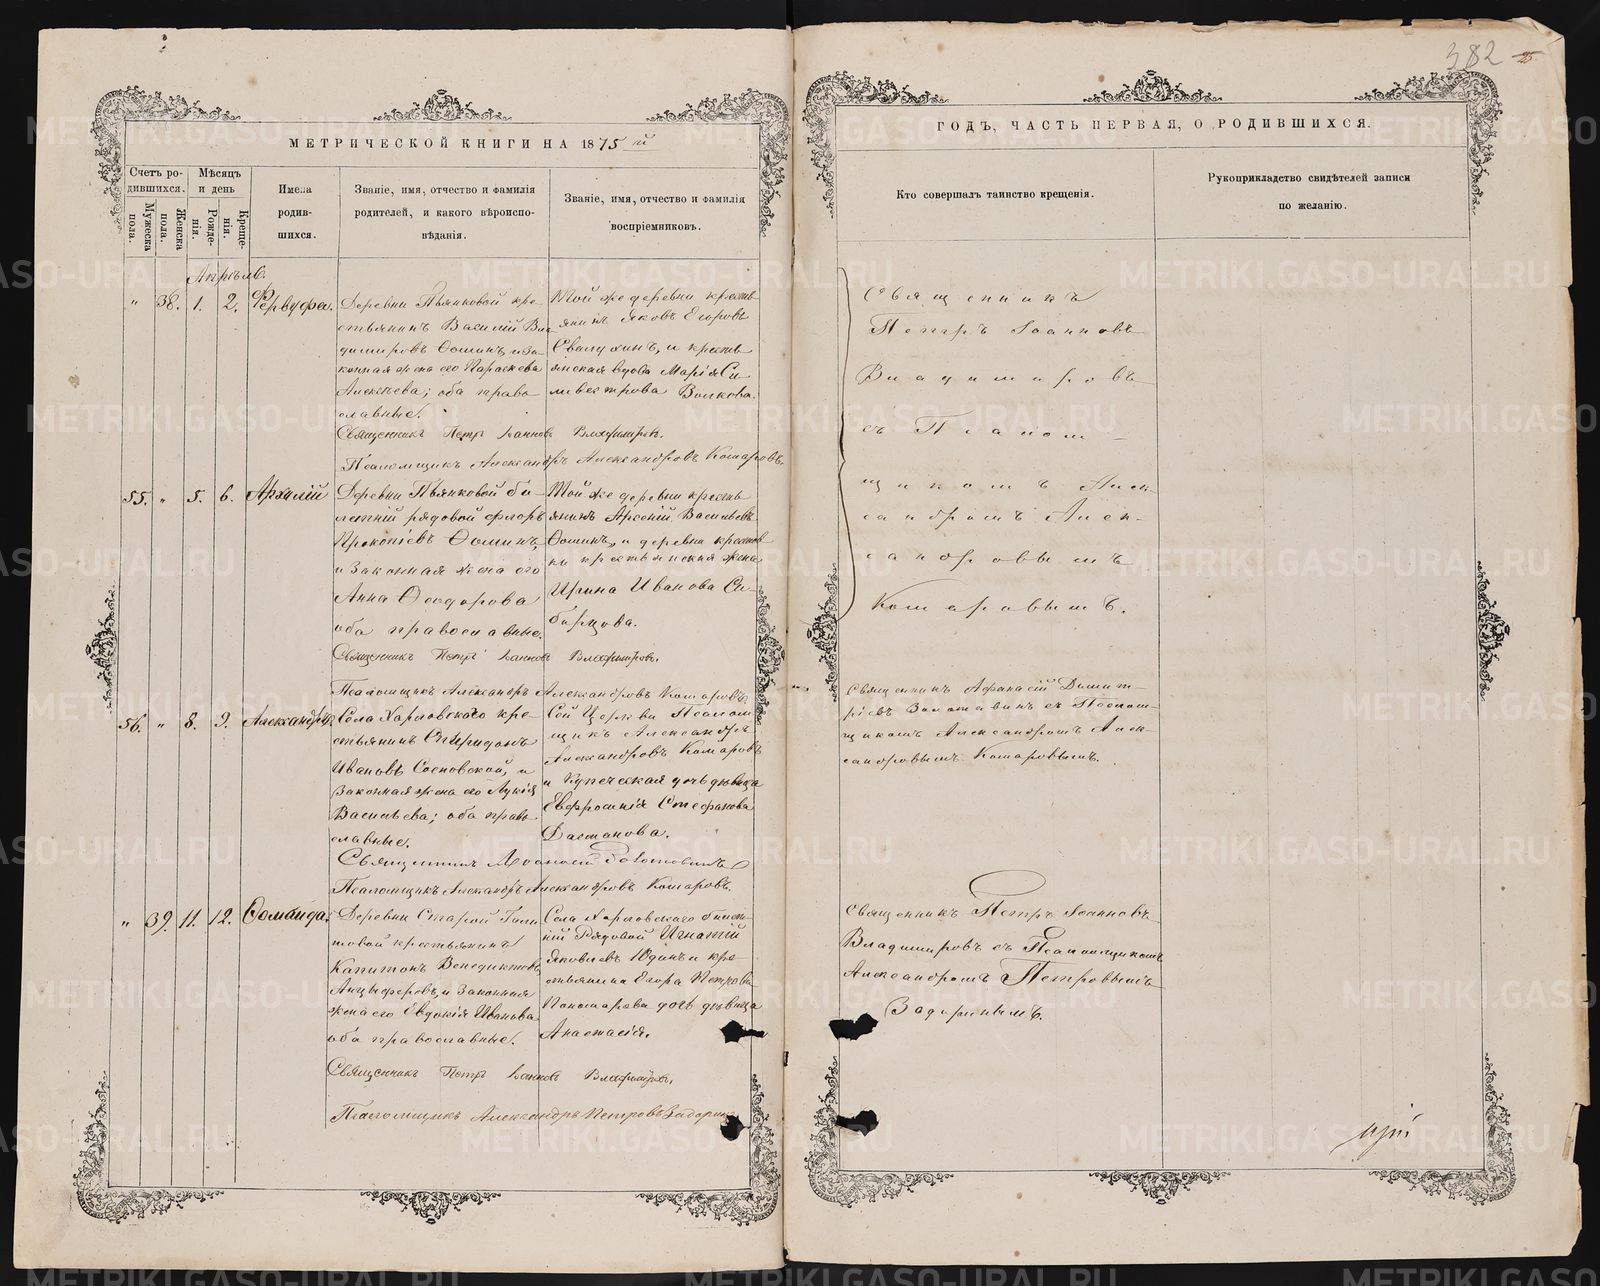 382
МЕТРИЧЕСКОЙ КНИГИ НА 1875 й
ГОДЪ, ЧАСТЬ ПЕРВАЯ, О РОДИВШИХСЯ.
Счетъ ро-
дившихся.
Мужеска
пола.
Женска
пола.
Мѣсяцъ
и день
Рожде-
нія.
Креще-
нія.
Имена
родив-
шихся.
Званіе, имя, отчество и фамилія
родителей, и какого вѣроиспо-
вѣданія.
Званіе, имя, отчество и фамилія
воспріемниковъ.
Кто совершалъ таинство крещенія.
Рукоприкладство свидѣтелей записи
по желанію.
Апрѣль.
" 38. 1. 2. Фервуфа.
Деревни Пьянковой кре-
стьянинъ Василій Вла-
димировъ Ѳоминъ, и за-
конная жена его Параскева
Алексѣева; оба право-
славные.
Той же деревни кресть-
янинъ Яковъ Егоровъ
и кресть-
янская вдова Марія Си-
ливестрова Волкова.
Священникъ Петръ Іанновъ Владиміровъ.
Псаломщикъ Александръ Александровъ Комаровъ.
Священникъ
Петръ Іоанновъ
Владимировъ
съ Псалом-
щикомъ Алек-
сандромъ Алек-
сандровымъ
Комаровымъ.
55. " 5. 6. Архилій
Деревни Пьянковой би-
летній рядовой Флоръ
Прокопіевъ Ѳоминъ,
и законная жена его
Анна Ѳеодорова
оба православные.
Той же деревни кресть-
янинъ Арсеній Васильевъ
Ѳоминъ, и деревни
крестьянская жена
Ирина Иванова Си-
бирцова.
Священникъ Петръ Іанновъ Владиміровъ.
Псаломщикъ Александръ Александровъ Комаровъ.
56. " 8. 9. Александръ.
Села Харловскаго кре-
стьянинъ Спиридонъ
Ивановъ Сосновской, и
законная жена его Лукія
Васильева; оба право-
славные.
Сей Церкви Псалом-
щикъ Александръ
Александровъ Комаровъ
и Купеческая дочь дѣвица
Евфросинія Стефанова
Священникъ Аѳанасій
Псаломщикъ Александръ Александровъ Комаровъ.
Священникъ Аѳанасій Димит-
ріевъ съ Псалом-
щикомъ Александромъ Алек-
сандровымъ Комаровымъ.
" 39. 11. 12. Ѳомаида.
Деревни Старой
крестьянинъ
Капитонъ Венедиктовъ
Анцыферовъ, и законная
жена его Евдокія Иванова
оба православные.
Села Харловскаго билет-
ній Рядовой Игнатій
Яковлевъ Юдинъ и кре-
стьянина Егора Петрова
Пономарева дочь дѣвица
Анастасія.
Священникъ Петръ Іанновъ Владиміровъ.
Псаломщикъ Александръ Петровъ Задоринъ
Священникъ Петръ Іоанновъ
Владимировъ съ Псаломщикомъ
Александромъ Петровымъ
Задоринымъ.
METRIKI.GASO-URAL.RU